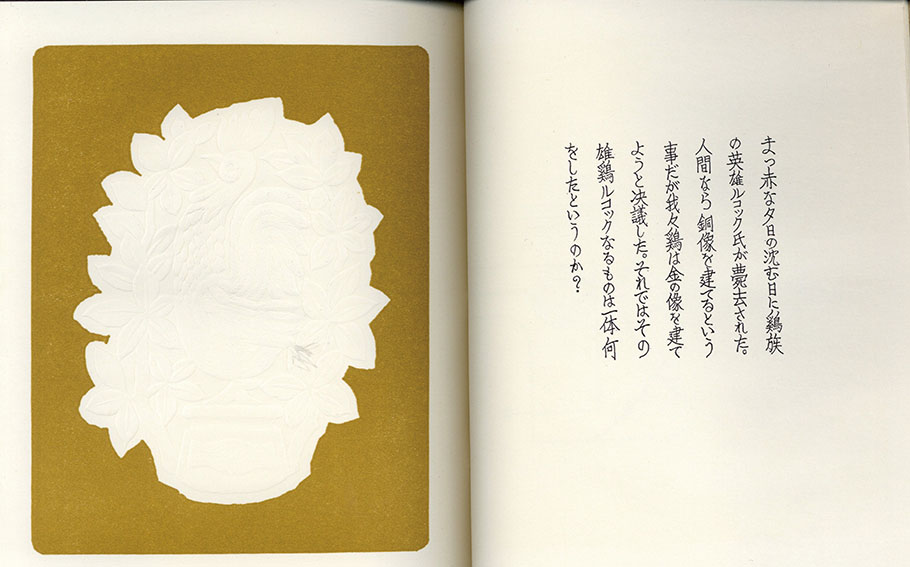 まっ赤な夕日の沈む日に鷄族
の英雄ルコック氏が薨去された。
人間なら銅像を建てるという
事だが我々鷄は金の像を建て
ようと決議した。それではその
雄鷄ルコックなるものは一体何
をしたというのか？